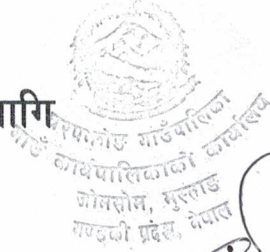 ागि
घरपझोङ गाउँपालिका
गाउँ कार्यपालिकाको कार्यालय
जोमसोम, मुस्ताङ
गण्डकी प्रदेश, नेपाल